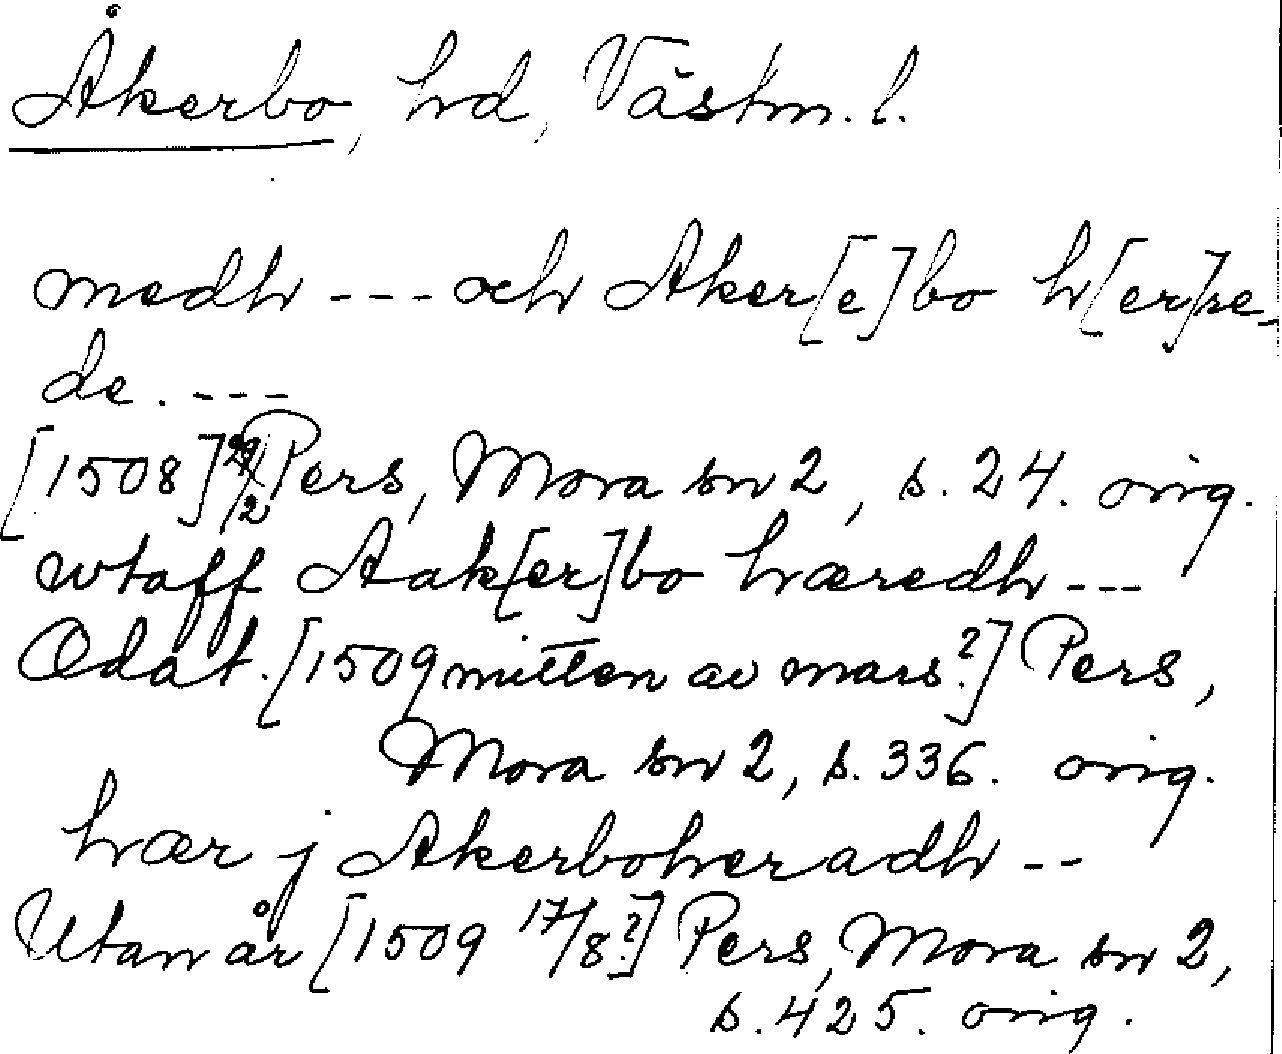 Åkerbo, hd, Västm. l.
medh --- och Aker[e]bo h[er]re-
de. ----
[1508] 29/2 Pers, Mora sn 2, s. 24. orig.
wtaff Aak[er]bo hæredh ---
Odat. [1509 mitten av mars?] Pers,
Mora sn 2, s. 336. orig.
hær j Akerboheradh --
Utan år [1509 17/8?] Pers, Mora sn 2,
s. 425. orig.